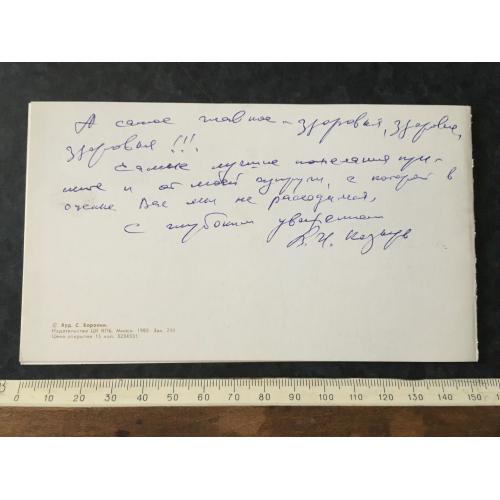 А самое главное – здоровья, здоровья,
здоровья!!!
Самые лучшие пожелания при-
мите и от моей супруги, с которой в
оценке Вас мы не расходимся,
С глубоким уважением
В.И. Козырь
© Худ. С. Борозна.
Издательство ЦК КПБ, Минск. 1982. Зак.
Цена открытки 15 коп.
0 10 20 30 40 50 60 70 80 90 100 110 120 130 140 150